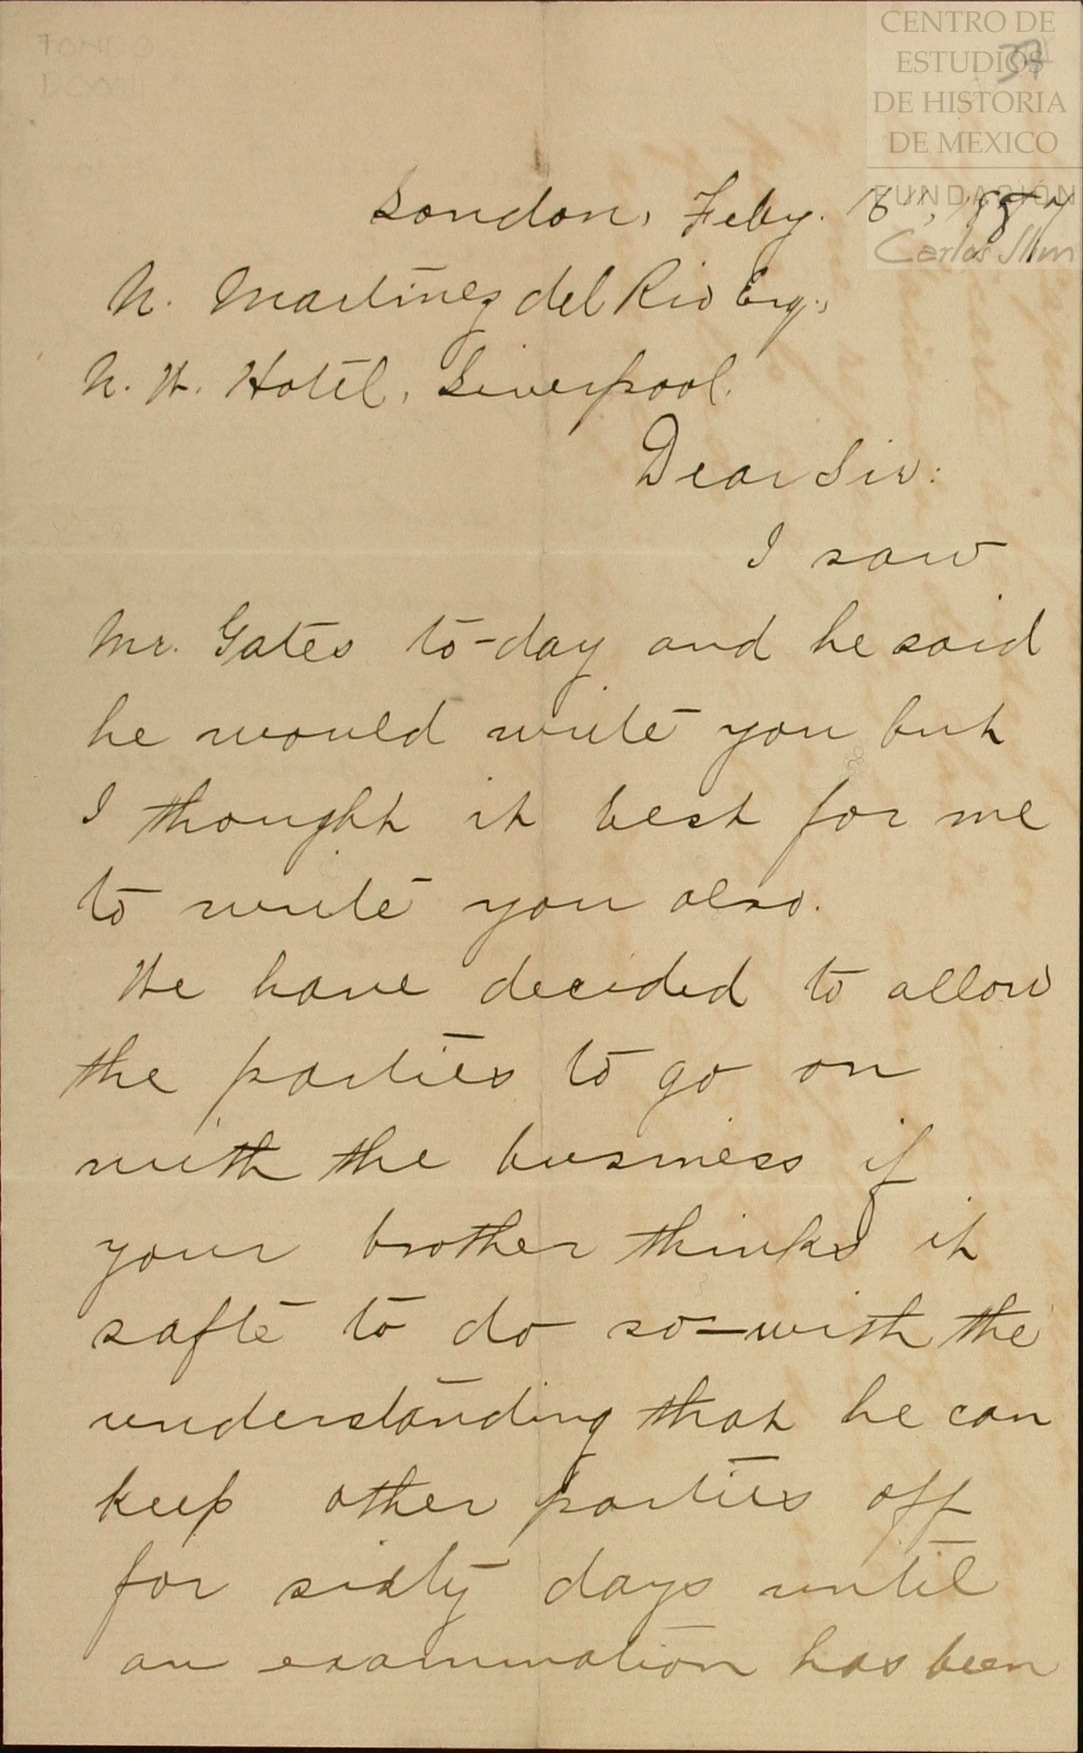 CENTRO DE
ESTUDIOS
DE HISTORIA
DE MEXICO
FUNDACIÓN
Carlos Slim
London, Feby. 1887
N. Martínez del Rio Esq.,
N. W. Hotel, Liverpool.
Dear Sir:
I saw
Mr. Gates to-day and he said
he would write you but
I thought it best for me
to write you also.
We have decided to allow
the parties to go on
with the business if
your brother thinks it
safte to do so—with the
understanding that he can
keep other parties off
for sixty days until
an examination has been